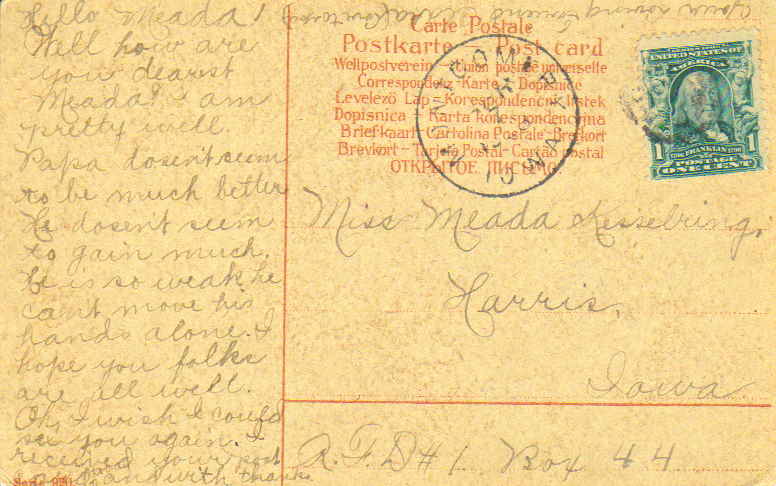 Hello Meada!
Well how are
you dearest
Meada? I am
pretty well.
Papa dosent seem
to be much better
He dosent seem
to gain much.
He is so weak he
can't move his
hands alone. I
hope you folks
are all well.
Oh, I wish I could
see you again. I
received your post
card and with thanks
Your loving
Carte Postale
Postkarte Post card
Weltpostverein - Union postale universelle
Correspondenz-Karte - Dopisnice
Levelező Lap - Korespondenční lístek
Dopisnica - Karta korespondencyjna
Briefkaart - Cartolina Postale - Brefkort
Brevkort - Tarjeta Postal - Cartão postal
ОТКРЫТОЕ ПИСЬМО
IOWA
UNITED STATES OF
AMERICA
1 FRANKLIN 1
POSTAGE
ONE CENT
Miss Meada Kesselring,
Harris,
Iowa
R.F.D# 1. Box 44
Serie